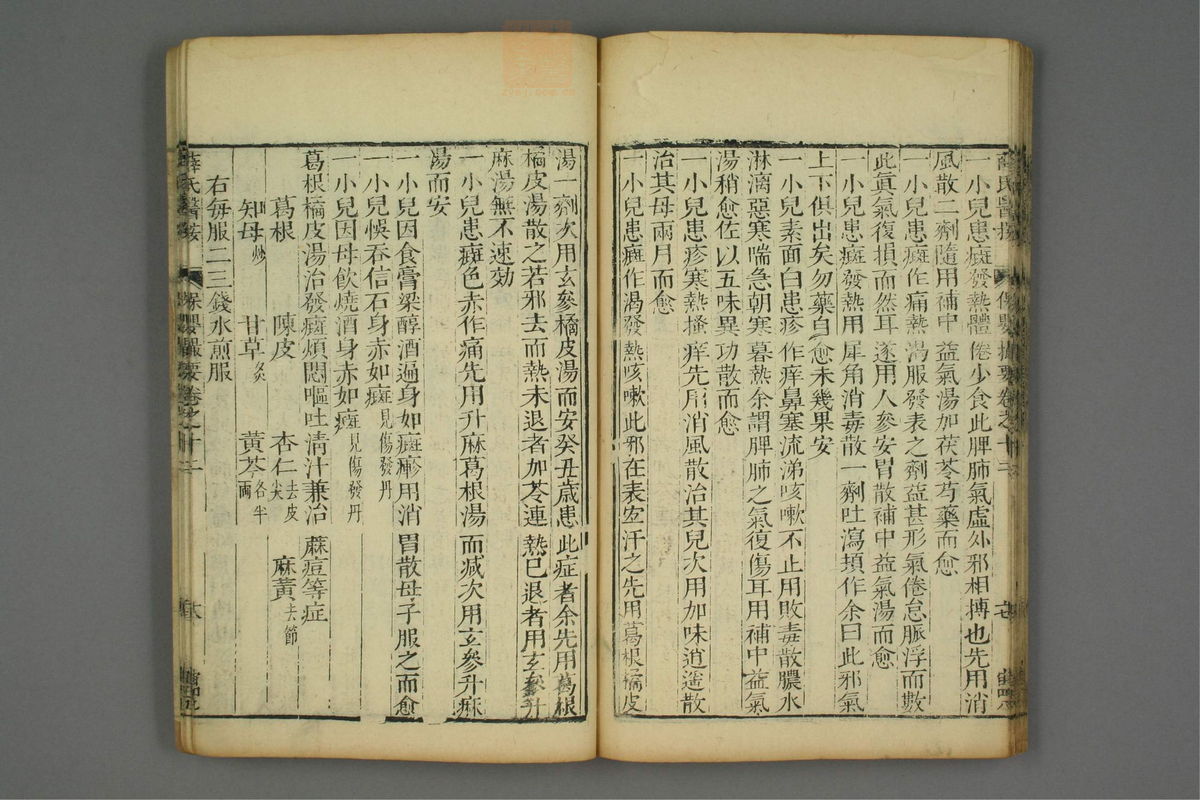 一小兒患癍發熱體倦少食此脾肺氣虛外邪相搏也先用消
風散二劑隨用補中益氣湯加茯苓芍藥而愈
一小兒患癍作痛熱渴服發表之劑益甚形氣倦怠脈浮而數
此眞氣復損而然耳遂用人參安胃散補中益氣湯而愈
一小兒患癍發熱用犀角消毒散一劑吐瀉頓作余曰此邪氣
上下俱出矣勿藥自愈未幾果安
一小兒素面白患疹作痒鼻塞流涕咳嗽不止用敗毒散膿水
淋漓惡寒喘急朝寒暮熱余謂脾肺之氣復傷耳用補中益氣
湯稍愈佐以五味異功散而愈
一小兒患疹寒熱搔痒先用消風散治其兒次用加味逍遙散
治其母兩月而愈
一小兒患癍作渴發熱咳嗽此邪在表宜汗之先用葛根橘皮
湯一劑次用玄參橘皮湯而安癸丑歲患此症者余先用葛根
橘皮湯散之若邪去而熱未退者加芩連熱已退者用玄參升
麻湯無不速効
一小兒患癍色赤作痛先用升麻葛根湯而減次用玄參升麻
湯而安
一小兒因食膏粱醇酒遍身如癍瘮用消胃散母子服之而愈
一小兒悞吞信石身赤如癍見傷發丹
一小兒因母飲燒酒身赤如癍見傷發丹
葛根橘皮湯治發癍煩悶嘔吐清汁兼治蔴痘等症
葛根 陳皮 杏仁去皮尖 麻黃去節
知母炒 甘草炙 黃芩各半兩
右每服二三錢水煎服
薛氏醫按 保嬰撮要卷之十二